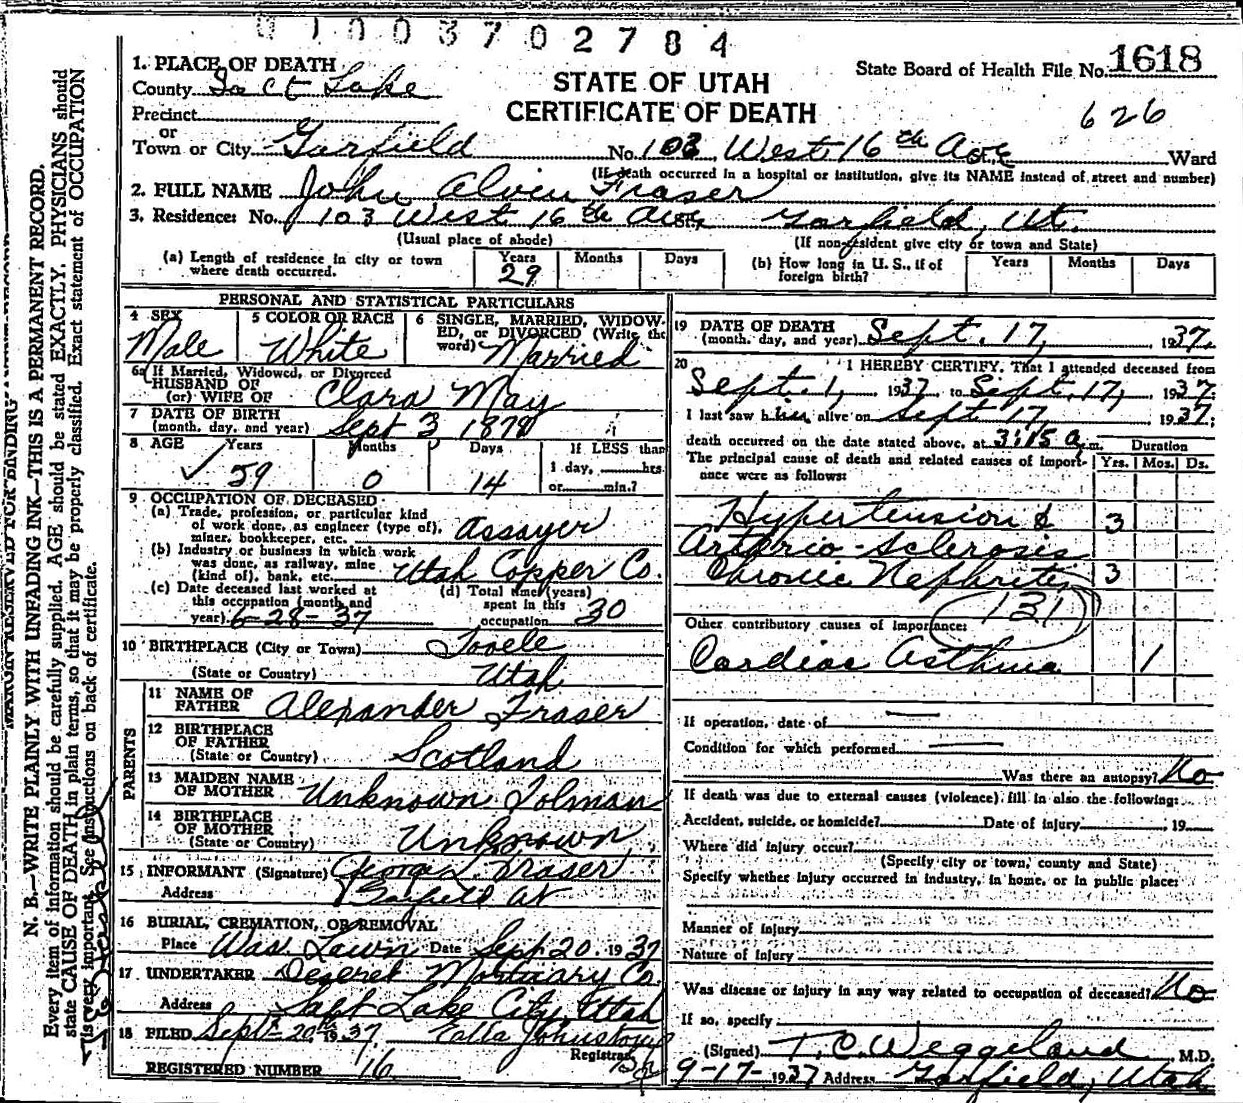 0100370 2784
1. PLACE OF DEATH
County Salt Lake
STATE OF UTAH
CERTIFICATE OF DEATH
State Board of Health File No. 1618
626
Precinct
or
Town or City Garfield No. 103 West 16th Ave St. Ward
(If death occurred in a hospital or institution, give its NAME instead of street and number)
2. FULL NAME John Alvin Fraser
3. Residence: No. 103 West 16th Ave St. Garfield, Ut.
(Usual place of abode) (If non-resident give city or town and State)
(a) Length of residence in city or town where death occurred. Years 29 Months Days
(b) How long in U. S., if of foreign birth? Years Months Days
PERSONAL AND STATISTICAL PARTICULARS
4 SEX Male
5 COLOR OR RACE White
6 SINGLE, MARRIED, WIDOWED, or DIVORCED (Write the word) Married
6a If Married, Widowed, or Divorced
HUSBAND OF
(or) WIFE OF Clara May
7 DATE OF BIRTH
(month, day, and year) Sept 3 1878
8 AGE Years Months Days If LESS than
✓ 59 0 14 1 day, hrs.
or min.?
9 OCCUPATION OF DECEASED
(a) Trade, profession, or particular kind
of work done, as engineer (type of),
miner, bookkeeper, etc. Assayer
(b) Industry or business in which work
was done, as railway, mine
(kind of), bank, etc. Utah Copper Co.
(c) Date deceased last worked at
this occupation (month and
year) 6-28-37
(d) Total time (years)
spent in this
occupation 30
10 BIRTHPLACE (City or Town) Tooele
(State or Country) Utah
PARENTS
11 NAME OF
FATHER Alexander Fraser
12 BIRTHPLACE
OF FATHER
(State or Country) Scotland
13 MAIDEN NAME
OF MOTHER Unknown Tolman
14 BIRTHPLACE
OF MOTHER
(State or Country) Unknown
15 INFORMANT (Signature) George L. Fraser
Address Garfield Ut
16 BURIAL, CREMATION, OR REMOVAL
Place Was. Lawn Date Sept 20. 1937
17 UNDERTAKER Deseret Mortuary Co.
Address Salt Lake City, Utah
18 FILED Sept 20th 1937. Johnston
Registrar
REGISTERED NUMBER 16
19 DATE OF DEATH
(month, day, and year) Sept. 17, 1937.
20 I HEREBY CERTIFY, That I attended deceased from
Sept. 1, 1937 to Sept. 17, 1937.
I last saw him alive on Sept 17, 1937;
death occurred on the date stated above, at 3:15 a.m.
The principal cause of death and related causes of importance were as follows:
Duration
Yrs. Mos. Ds.
Hypertension & 3
Arterio-Sclerosis
Chronic Nephritis 3
131
Other contributory causes of importance:
Cardiac Asthma 1
If operation, date of
Condition for which performed
Was there an autopsy? No
If death was due to external causes (violence) fill in also the following:
Accident, suicide, or homicide? Date of injury 19
Where did injury occur?
(Specify city or town, county and State)
Specify whether injury occurred in industry, in home, or in public place:
Manner of injury
Nature of injury
Was disease or injury in any way related to occupation of deceased? No
If so, specify
(Signed) T. C. Weggeland, M.D.
9-17-1937 Address Garfield, Utah
MARGIN RESERVED FOR BINDING
N. B.—WRITE PLAINLY WITH UNFADING INK—THIS IS A PERMANENT RECORD.
Every item of information should be carefully supplied. AGE should be stated EXACTLY. PHYSICIANS should
state CAUSE OF DEATH in plain terms, so that it may be properly classified. Exact statement of OCCUPATION
is very important. See instructions on back of certificate.